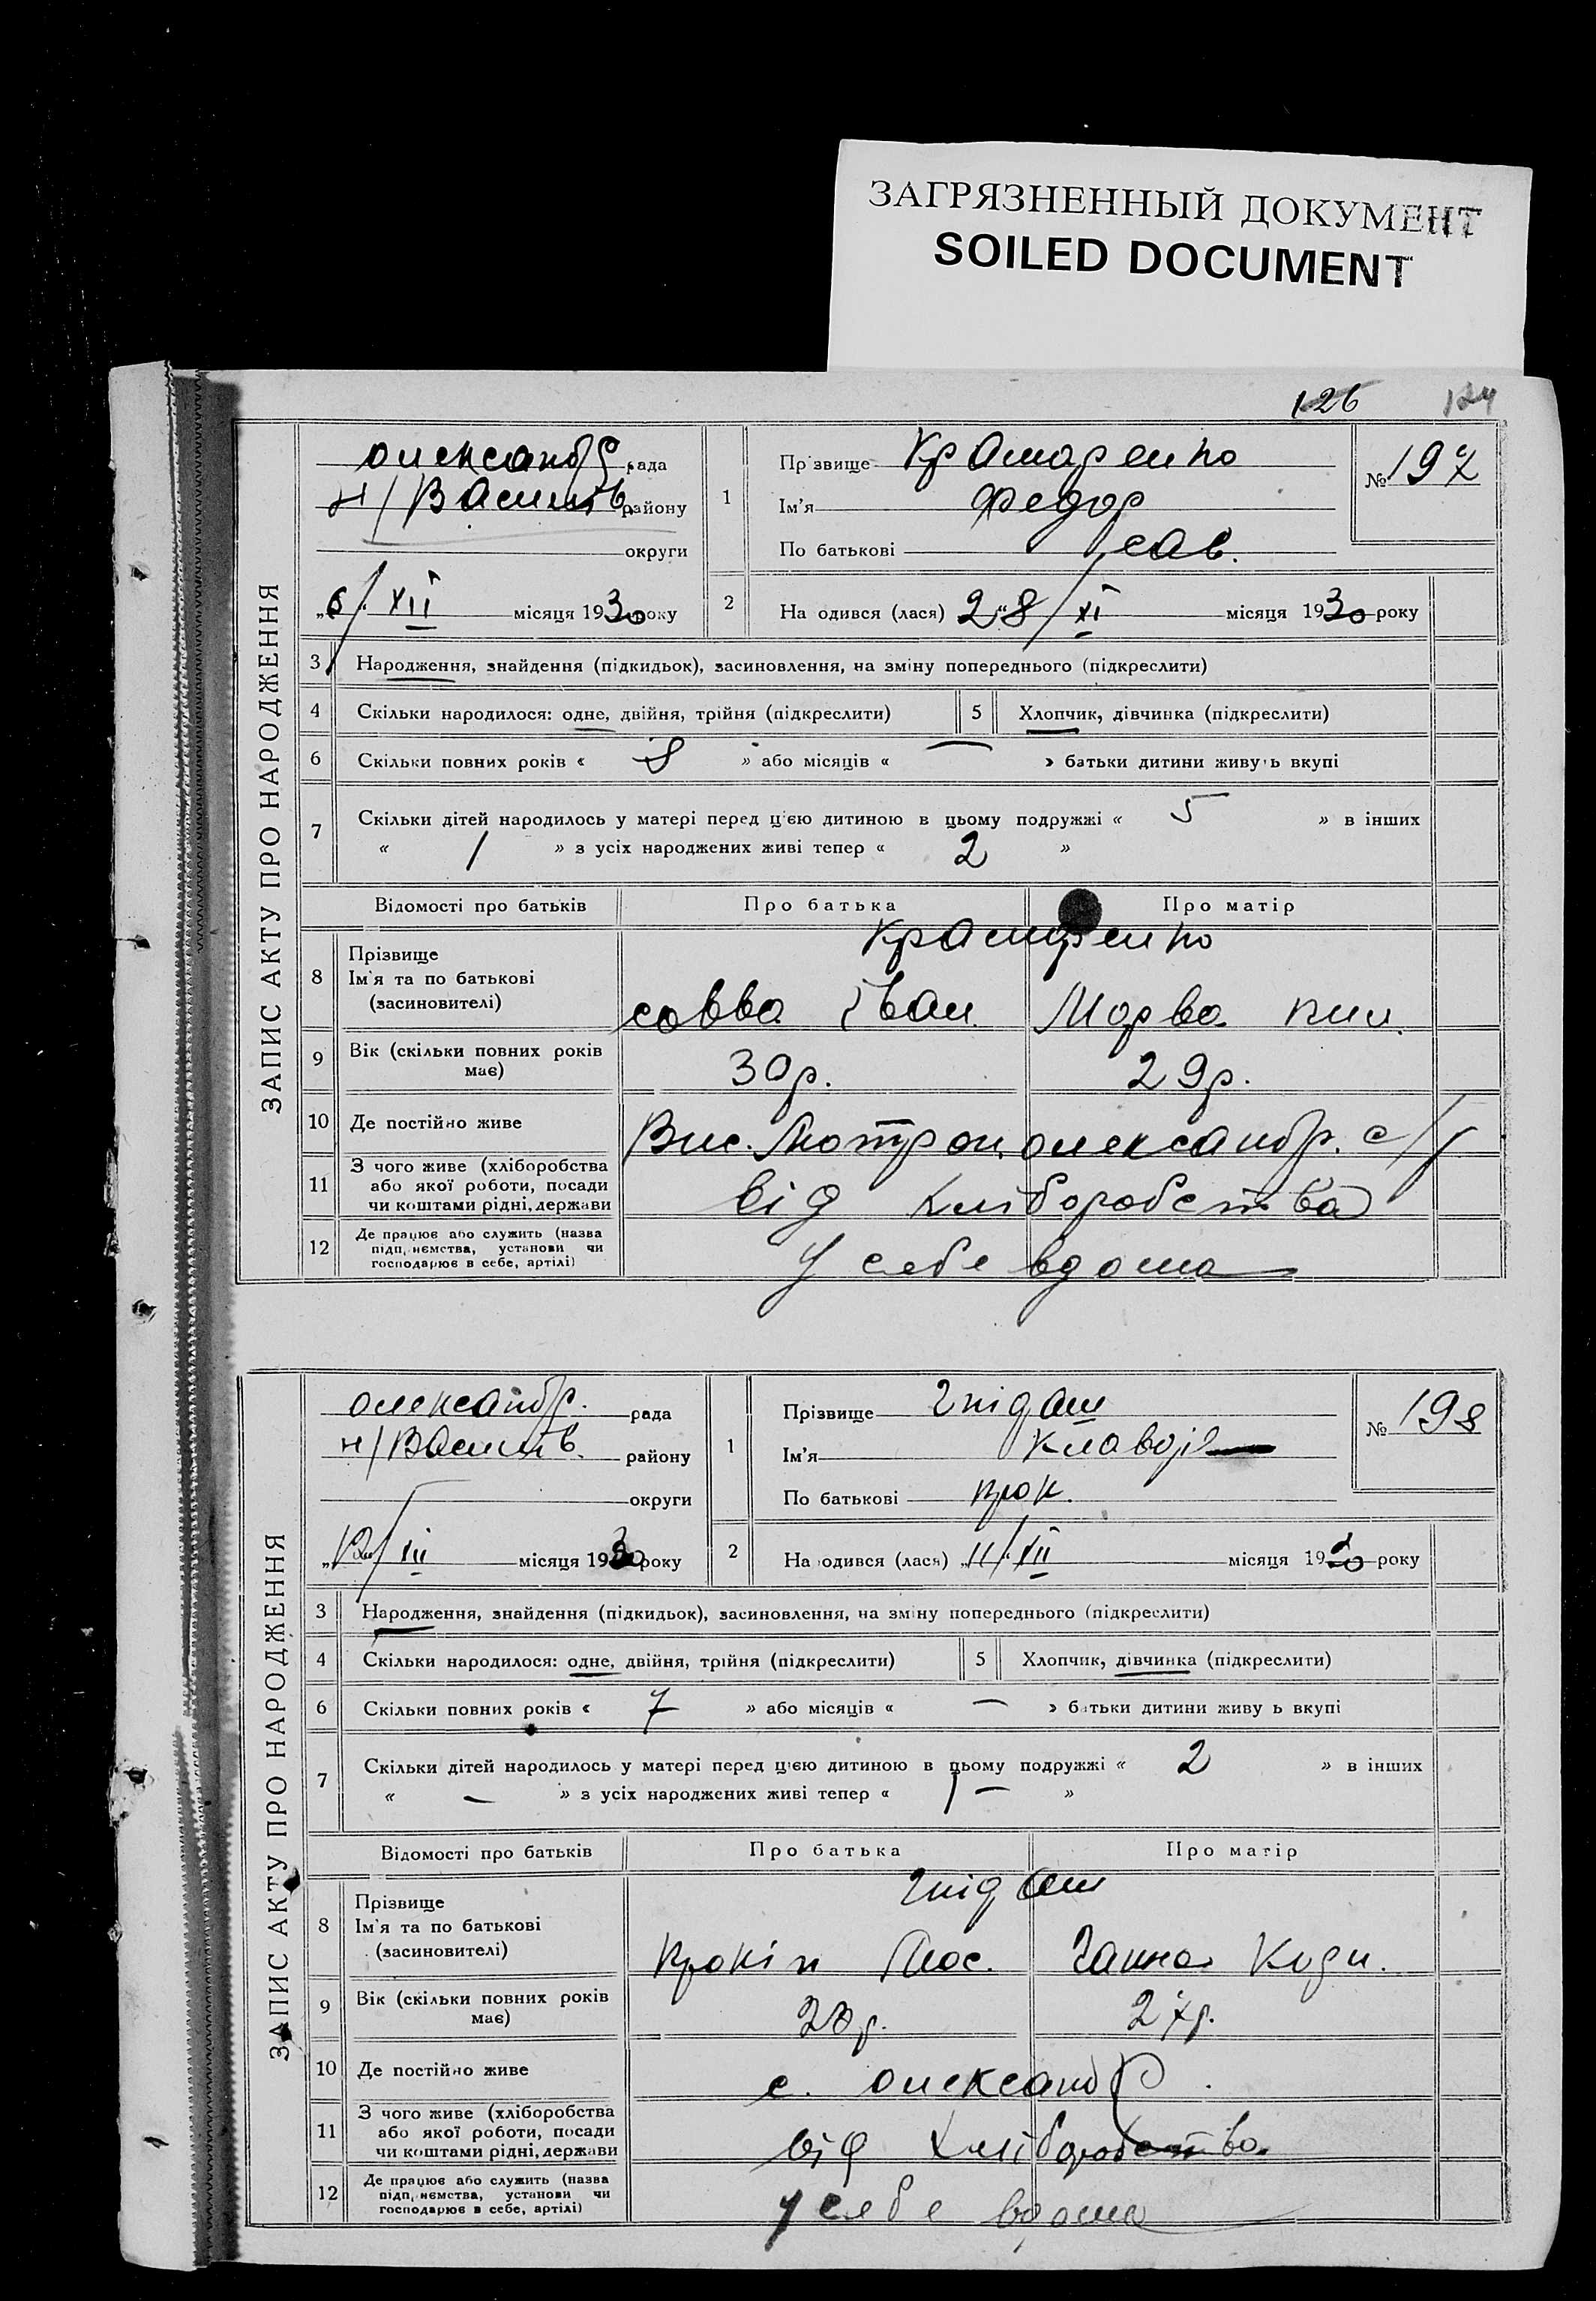 ЗАГРЯЗНЕННЫЙ ДОКУМЕНТ
SOILED DOCUMENT
126 124
ЗАПИС АКТУ ПРО НАРОДЖЕННЯ
олександр. рада
н/Василів. району
округи
„6/XII місяця 1930 року
1 Прізвище Крамаренко
Ім'я Федор
По батькові сав.
№ 197
2 На одився (лася) 28/XI місяця 1930 року
3 Народження, знайдення (підкидьок), засиновлення, на зміну попереднього (підкреслити)
4 Скільки народилося: одне, двійня, трійня (підкреслити) 5 Хлопчик, дівчинка (підкреслити)
6 Скільки повних років « 8 » або місяців « — » батьки дитини живуть вкупі
7 Скільки дітей народилось у матері перед цією дитиною в цьому подружжі « 5 » в інших
« 1 » з усіх народжених живі тепер « 2 »
Відомості про батьків Про батька Про матір
8 Прізвище Крамаренко
Ім'я та по батькові
(засиновителі) савва Іван. Марва пил.
9 Вік (скільки повних років має) 30р. 29р.
10 Де постійно живе Вис. олександр. с/р
11 З чого живе (хліборобства
або якої роботи, посади
чи коштами рідні, держави від хліборобства
12 Де працює або служить (назва
підп, иємства, установи чи
господарює в себе, артілі) У себе вдома
ЗАПИС АКТУ ПРО НАРОДЖЕННЯ
олександр. рада
н/Василів. району
округи
„12/XII місяця 1930 року
1 Прізвище Гнідаш
Ім'я Клавдія
По батькові прок.
№ 198
2 На одився (лася) „11/XII місяця 1930 року
3 Народження, знайдення (підкидьок), засиновлення, на зміну попереднього (підкреслити)
4 Скільки народилося: одне, двійня, трійня (підкреслити) 5 Хлопчик, дівчинка (підкреслити)
6 Скільки повних років « 7 » або місяців « — » батьки дитини живу ь вкупі
7 Скільки дітей народилось у матері перед цією дитиною в цьому подружжі « 2 » в інших
« — » з усіх народжених живі тепер « 1 — »
Відомості про батьків Про батька Про матір
8 Прізвище Гнідаш
Ім'я та по батькові
(засиновителі) Прокіп Ганна
9 Вік (скільки повних років має) 28р. 27р.
10 Де постійно живе с. олександр.
11 З чого живе (хліборобства
або якої роботи, посади
чи коштами рідні, держави від хліборобства
12 Де працює або служить (назва
підп, иємства, установи чи
господарює в себе, артілі) у себе вдома